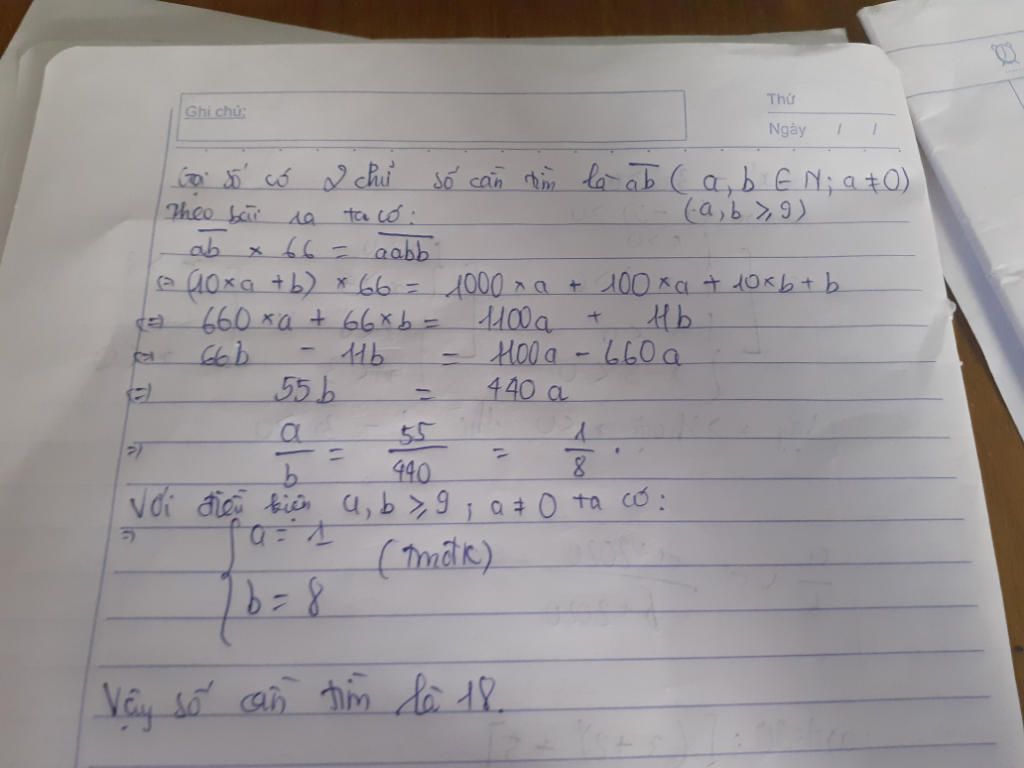 Ghi chú:
Thứ
Ngày / /
Gọi số có 2 chữ số cần tìm là a̅b̅ ( a, b ∈ N; a ≠ 0)
Theo bài ra ta có: (a, b ⩾ 9)
a̅b̅ × 66 = a̅a̅b̅b̅
⇔ (10×a + b) × 66 = 1000 × a + 100 × a + 10 × b + b
⇔ 660 × a + 66 × b = 1100a + 11b
⇔ 66b - 11b = 1100a - 660a
⇔ 55b = 440a
⇒ a/b = 55/440 = 1/8 .
Với điều kiện a, b ⩾ 9 ; a ≠ 0 ta có:
⇒ { a = 1
(TMĐK)
b = 8
Vậy số cần tìm là 18.